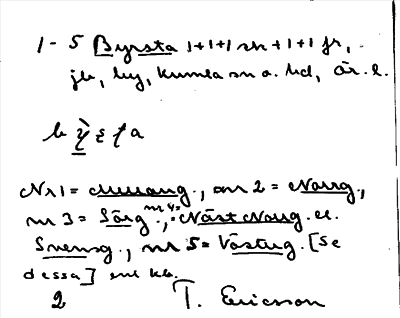 1-5 Byrsta 1+1+1 sk + 1+1 fr,
jb, by, Kumla sn o. hd, Ör. l.
b ỳ ṣ t a
Nr 1 = , nr 2 = Norrg.,
nr 3 = Sörg., nr 4 = Näst Norrg. el.
Svensg., nr 5 = Västug. [se
dessa] enl kb.
2 T. Ericsson